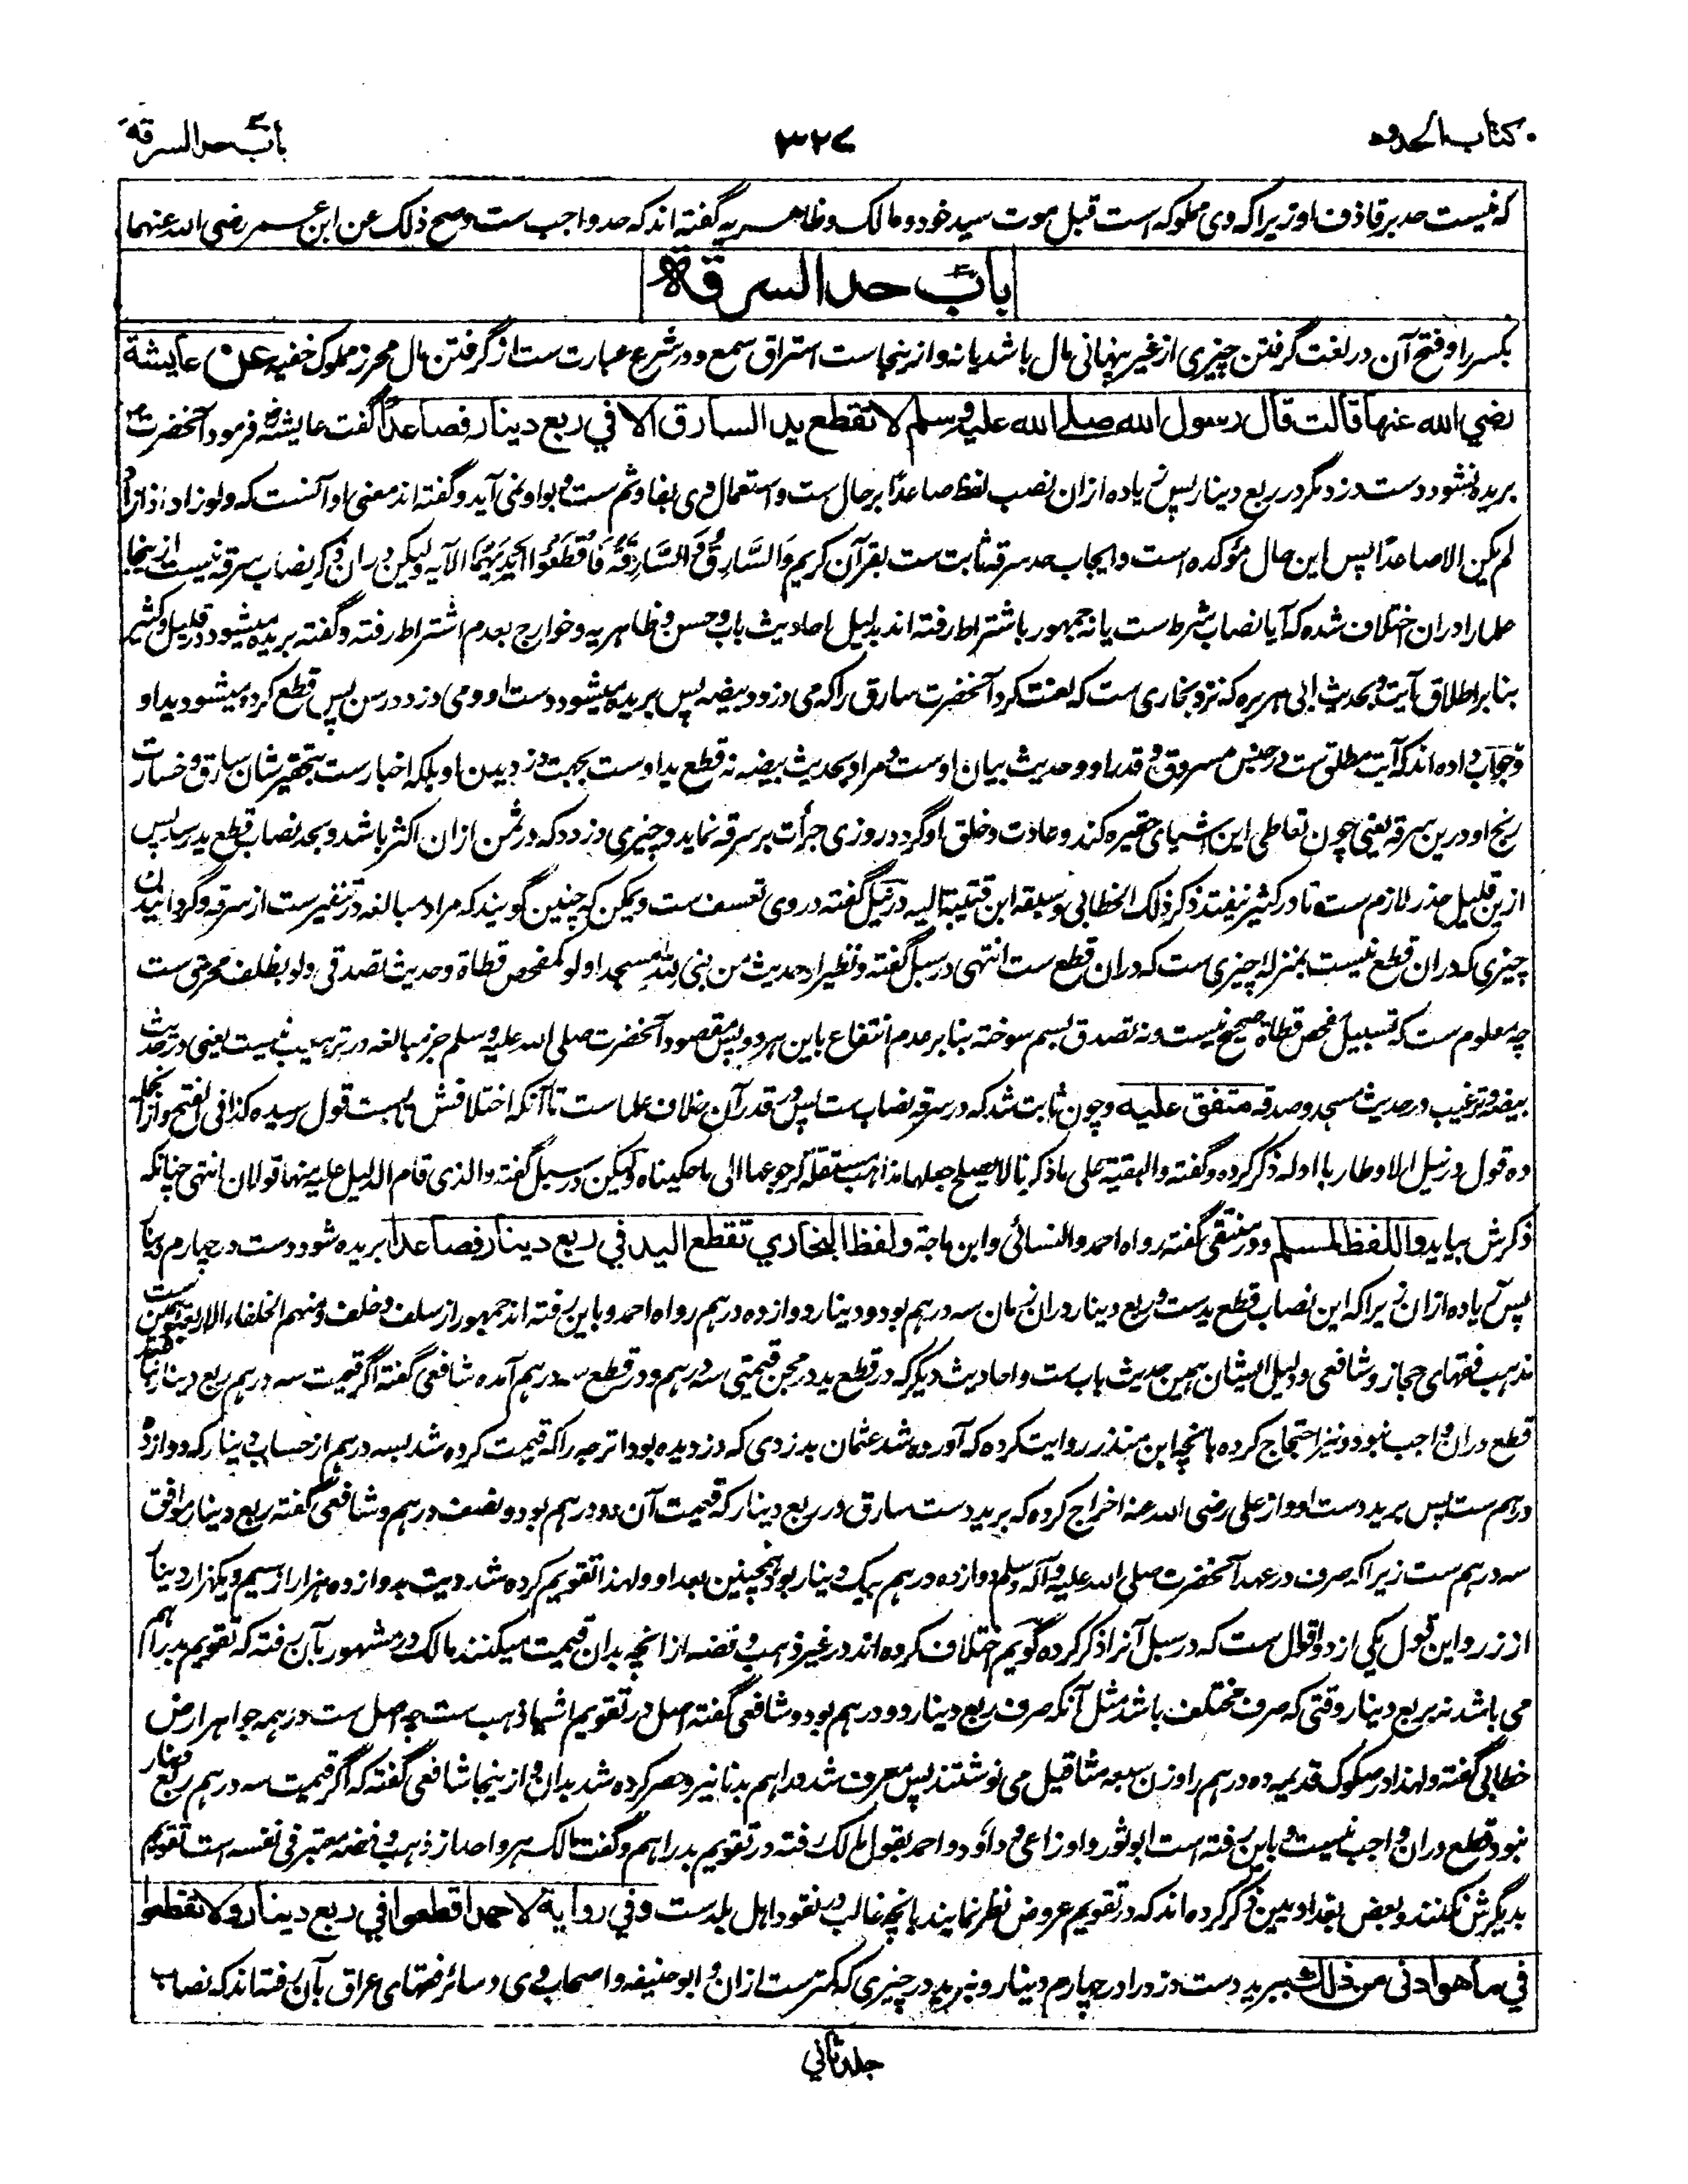 کتاب الحدود ۳۲۷ باب حد السرقة
که نیست حد بر قاذف او زیرا که وی مملوکه است قبل موت سید خود و مالک و ظاهریه گفته اند که حد واجب ست و صح ذلک عن ابن عمر رضی الله عنهما
باب حد السرقة
بکسر را و فتح آن در لغت گرفتن چیزی از غیر پنهانی مال باشد یا نه و ازینجاست استراق سمع و در شرع عبارت ست از گرفتن مال محرز مملوک خفیه عن عایشة
رضي الله عنها قالت قال رسول الله صلى الله عليه وسلم لا تقطع يد السارق الا في ربع دينار فصاعدا گفت عایشه فرمود آنحضرت
بریده نشود دست دزد مگر در ربع دینار پس زیاده ازان نصب لفظ صاعدا بر حال ست و استعمال وی بفا و ثم ست و بواو نمی آید و گفته اند معنی او آنست که ولو زاد اذا زاد
لم یکن الا صاعدا پس این حال مؤکده است و ایجاب حد سرقه ثابت ست بقرآن کریم وَالسَّارِقُ وَالسَّارِقَةُ فَاقْطَعُوا أَيْدِيَهُمَا الآیه ولیکن دران ذکر نصاب سرقه نیست ازینجا
علما را دران اختلاف شده که آیا نصاب شرط ست یا نه جمهور باشتراط رفته اند بدلیل احادیث باب و حسن و ظاهریه و خوارج بعدم اشتراط رفته و گفته بریده میشود در قلیل و کثیر
بنابر اطلاق آیت و بحدیث ابی هریره که نزد بخاری ست که لعنت کرد آنحضرت سارق را که می دزدد بیضه پس بریده میشود دست او و می دزدد رسن پس قطع کرده میشود ید او
و جواب داده اند که آیت مطلق ست در جنس مسروق و قدر او و حدیث بیان اوست و مراد بحدیث بیضه نه قطع ید اوست بجهت دزدیدن او بلکه اخبارست بتحقیر شان سارق و خسارت
ربح او درین سرقه یعنی چون تعاطی این اشیای حقیره کند و عادت و خلق او گردد روزی جرأت بر سرقه نماید و چیزی دزدد که در ثمن ازان اکثر باشد و بحد نصاب قطع ید رسد پس
ازین قلیل حذر لازم ست تا در کثیر نیفتد ذکر ذلک الخطابی و سبقه ابن قتیبة الیه در نیل گفته در وی تعسف ست و یمکن که چنین گویند که مراد مبالغه در تنفیر ست از سرقه و گردانیدن
چیزی که دران قطع نیست بمنزله چیزی ست که دران قطع ست انتهی در سبل گفته و نظیر او حدیث من بنی لله مسجدا ولو کمفحص قطاة و حدیث تصدقی ولو بظلف محرق ست
چه معلوم ست که تسبیل مفحص قطاة صحیح نیست و نه تصدق بسم سوخته بنابر عدم انتفاع باین هر دو پس مقصود آنحضرت صلی الله علیه وسلم جز مبالغه در ترهیب نیست یعنی در حدیث
بیضه و ترغیب در حدیث مسجد و صدقه متفق علیه و چون ثابت شد که در سرقه نصاب ست پس در قدر آن خلاف علماست تا آنکه اختلافش به بست قول رسیده کذا فی الفتح و ازانجمله
ده قول در نیل الاوطار با ادله ذکر کرده و گفته والبقیة علی ما ذکرنا لا یصلح جعلها مذاهب مستقلة لرجوعها الی ما حکیناه ولیکن در سبل گفته والذی قام الدلیل علیه منها قولان انتهی چنانکه
ذکرش بیاید واللفظ لمسلم و در منتقی گفته رواه احمد والنسائی وابن ماجة ولفظ البخاري تقطع اليد في ربع دينار فصاعدا بریده شود دست در چهارم دینار
پس زیاده ازان زیرا که این نصاب قطع ید ست و ربع دینار دران زمان سه درهم بود و دینار دوازده درهم رواه احمد و باین رفته اند جمهور از سلف و خلف و منهم الخلفاء الاربعة و همین ست
مذهب فقهای حجاز و شافعی و دلیل ایشان همین حدیث باب ست و احادیث دیگر که در قطع ید در مجن قیمتی سه درهم و در قطع سه درهم آمده شافعی گفته اگر قیمت سه درهم ربع دینار نباشد
قطع دران واجب نبود و نیز احتجاج کرده بانچه ابن منذر روایت کرده که آورده شد عثمان بدزدی که دزدیده بود اترجه را که قیمت کرده شد بسه درهم از حساب دینار که دوازده
درهم ست پس برید دست او و از علی رضی الله عنه اخراج کرده که برید دست سارق در ربع دینار که قیمت آن دو درهم بود و نصف درهم و شافعی گفته ربع دینار موافق
سه درهم ست زیرا که صرف در عهد آنحضرت صلی الله علیه وآله وسلم دوازده درهم بیک دینار بود و همچنین بعد او و لهذا تقویم کرده شد دیت بدوازده هزار از سیم و یکهزار دینار
از زر و این قول یکی از دو اقوال ست که در سبل آنرا ذکر کرده گویم اختلاف کرده اند در غیر ذهب و فضه از انچه بدان قیمت میکنند مالک در مشهور بآن رفته که تقویم بدراهم
می باشد نه بربع دینار وقتی که صرف مختلف باشد مثل آنکه صرف ربع دینار دو درهم بود و شافعی گفته اصل در تقویم اشیا ذهب ست چه اصل ست در همه جواهر ارض
خطابی گفته ولهذا در صکوک قدیمه ده درهم را وزن سبعه مثاقیل می نوشتند پس معرف شد دراهم بدنانیر و حصر کرده شد بدان و ازینجا شافعی گفته که اگر قیمت سه درهم ربع دینار
نبود قطع دران واجب نیست و باین رفته است ابو ثور و اوزاعی و داؤد و احمد بقول مالک رفته در تقویم بدراهم و گفت مالک هر واحد از ذهب و فضه معتبر فی نفسه است تقویم
بدیگرش نکنند و بعض بغدادیین ذکر کرده اند که در تقویم عروض نظر نمایند بانچه غالب در نقود اهل بلد ست وفي رواية لاحمد اقطعوا في ربع دينار ولا تقطعوا
في ما هو ادنى من ذلك ببرید دست دزد را در چهارم دینار و نبرید در چیزی که کمتر ست ازان و ابو حنیفه و اصحاب وی و سائر فقهای عراق بآن رفته اند که نصاب
جلد ثانی